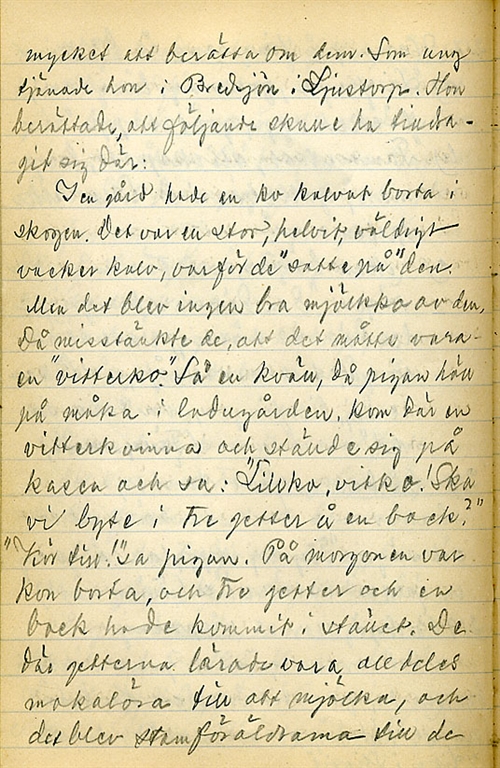 mycket att berätta om dem. Som ung
tjänade hon i Bredsjön i Ljustorp. Hon
berättade, att följande skulle ha tilldra-
git sig där:
I en gård hade en ko kalvat borta i
skogen. Det var en stor, helvit, väldigt
vacker kalv, varför de "satte på" den.
Men det blev ingen bra mjölkko av den,
Då misstänkte de, att det måtte vara
en "vitterko". Så en kväll, då pigan höll
på måka i ladugården, kom där en
vitterkvinna och ställde sig på
kasen och sa: "Lillko, vitko! Ska
vi byte i tre getter å en bock?"
"Kör till!" sa pigan. På morgonen var
kon borta, och tre getter och en
bock hade kommit i stället. De
där getterna lärade vara alldeles
makalösa till att mjölka, och
det blev stamföräldrarna till de